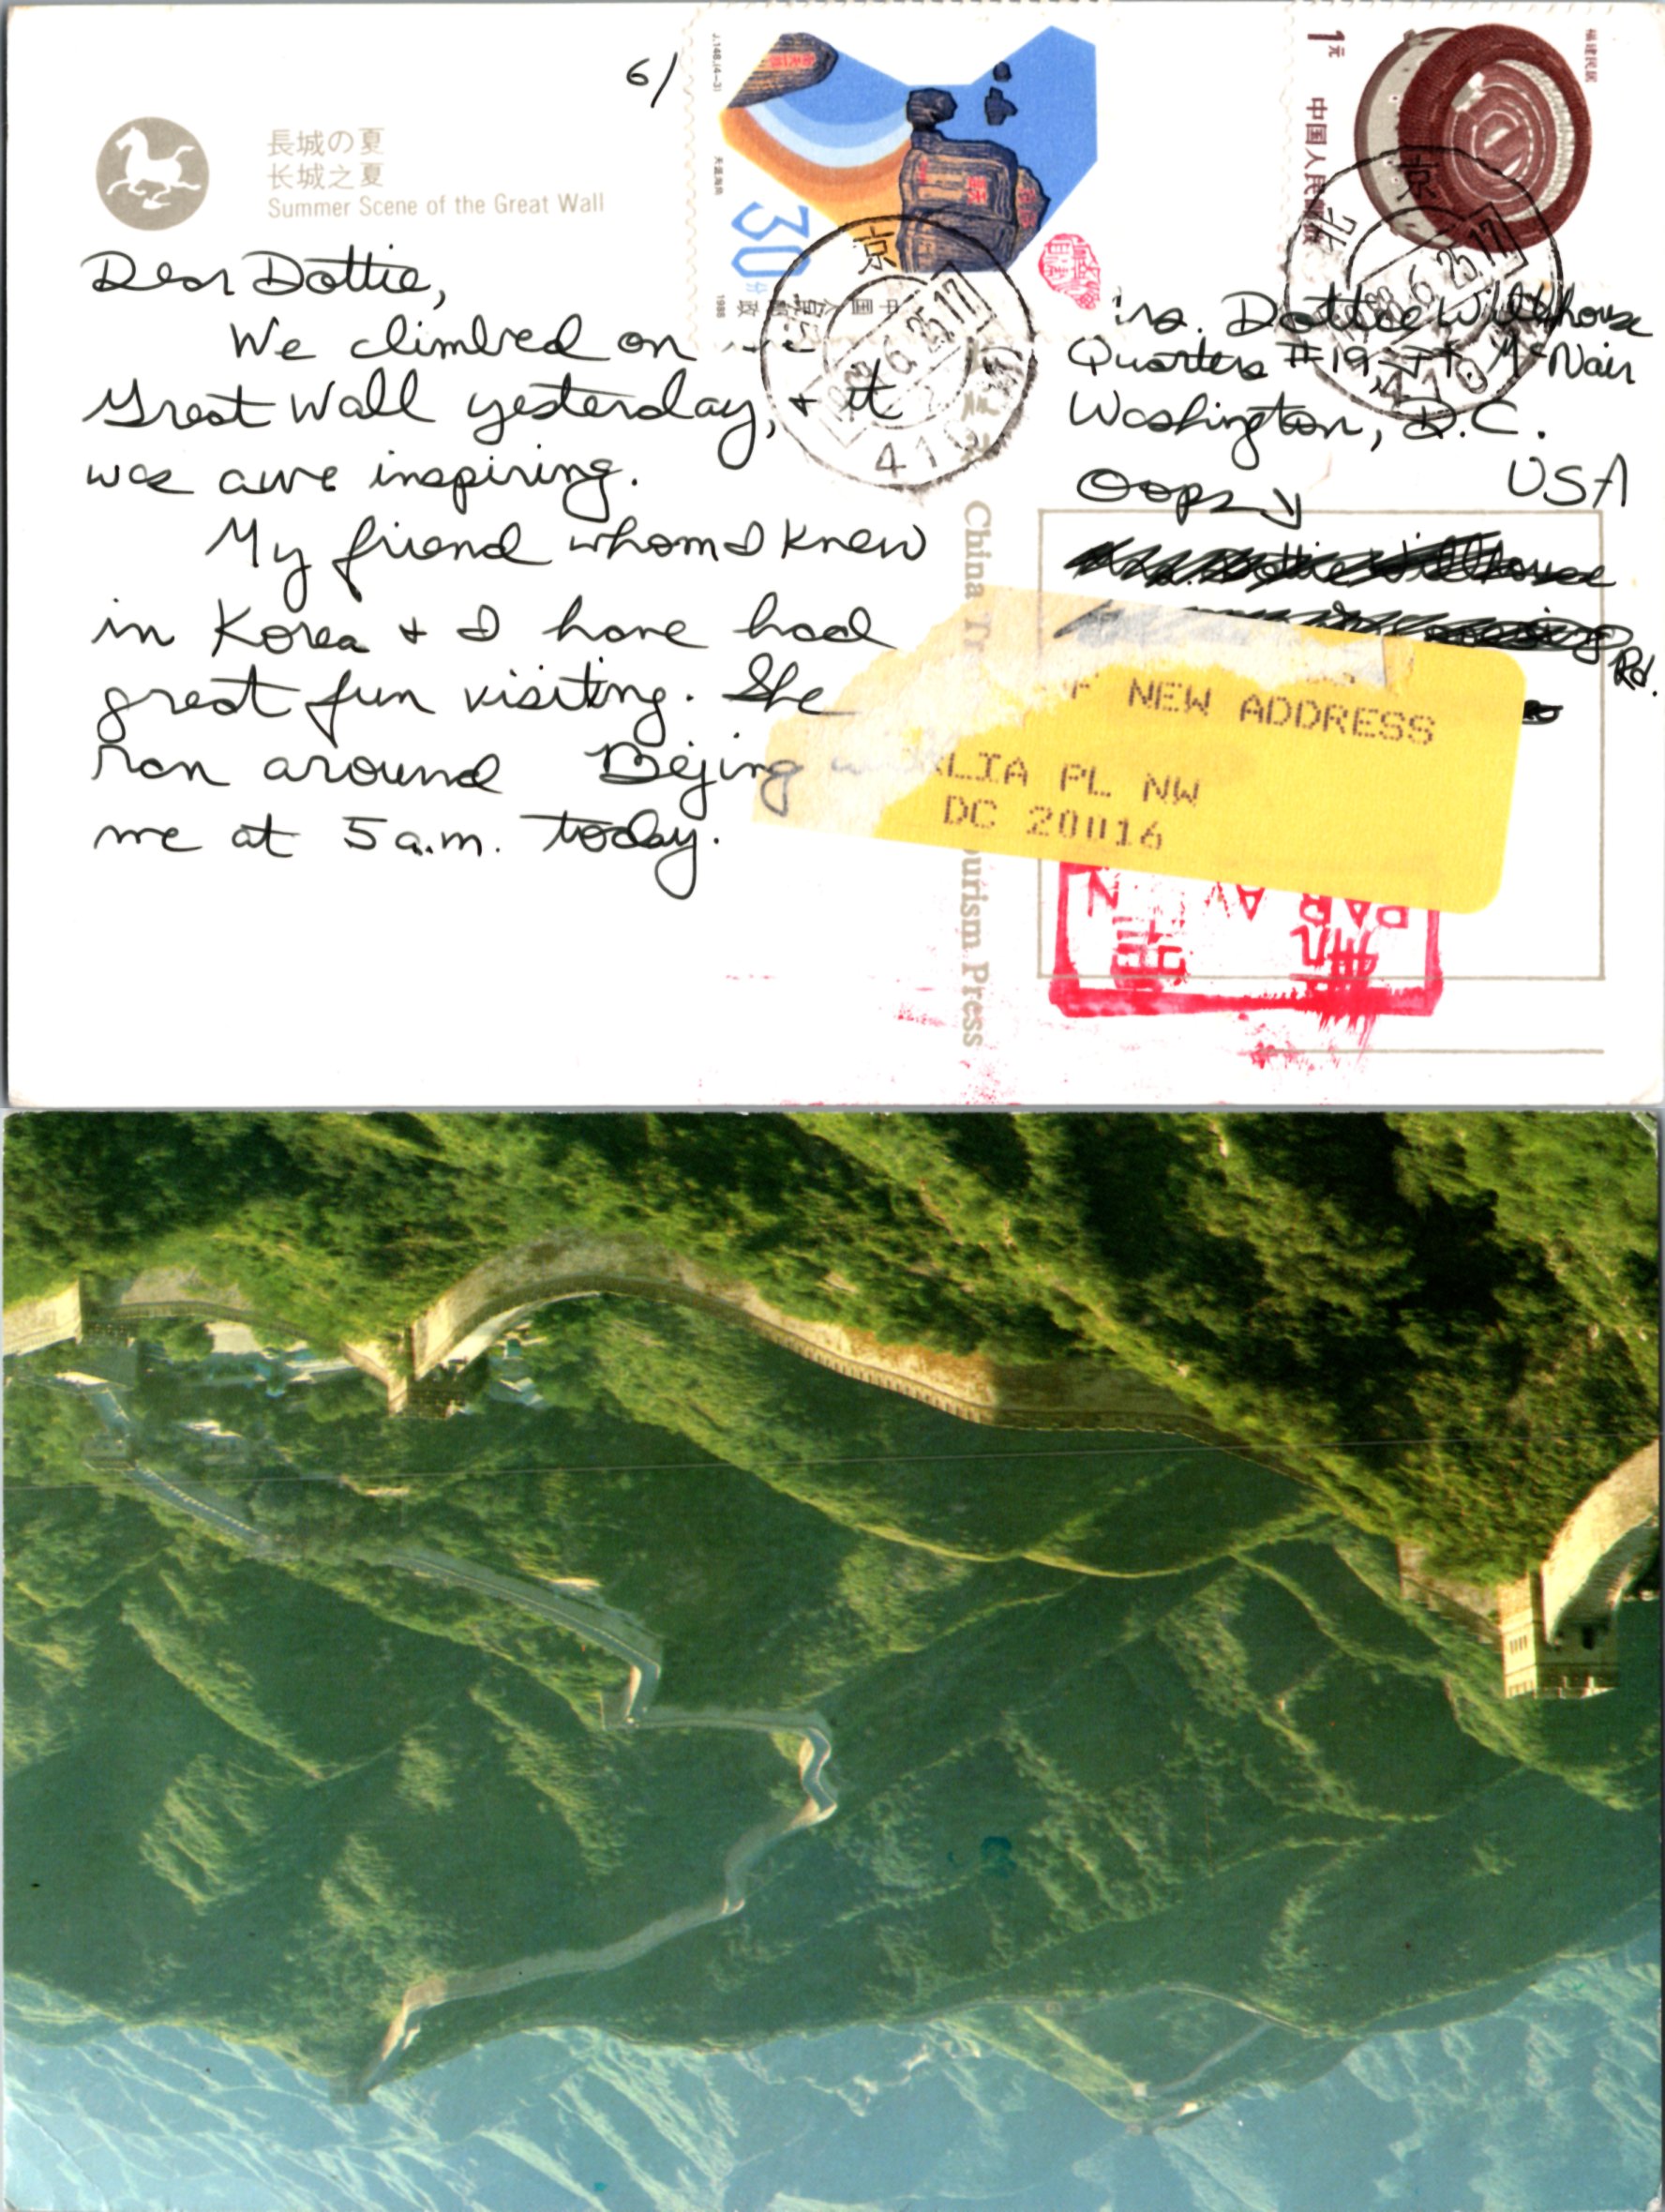 6/
長城の夏
长城之夏
Summer Scene of the Great Wall
Dear Dottie,
We climbed on
Great Wall yesterday, + it
was awe inspiring.
My friend whom I knew
in Korea + I have had
great fun visiting. She
ran around Bejing
me at 5 a.m. today.
J.148.(4-3)
30分
1988
1元
福建民居
中国人民
北京
1988.6.25.17
Dottie Willhouse
Quarters #19, Ft McNair
Washington, D.C.
USA
Oops
Rd.
China T
ourism Press
NEW ADDRESS
LIA PL NW
DC 20016
PAR AV N